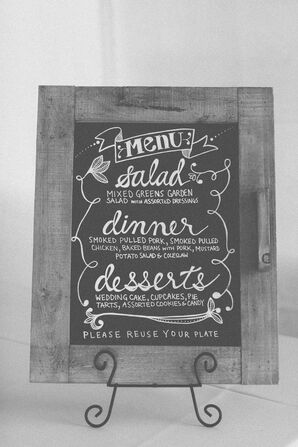 MENU
salad
MIXED GREENS GARDEN
SALAD WITH ASSORTED DRESSINGS
dinner
SMOKED PULLED PORK, SMOKED PULLED
CHICKEN, BAKED BEANS WITH PORK, MUSTARD
POTATO SALAD & COLESLAW
desserts
WEDDING CAKE, CUPCAKES, PIE
TARTS, ASSORTED COOKIES & CANDY
PLEASE REUSE YOUR PLATE